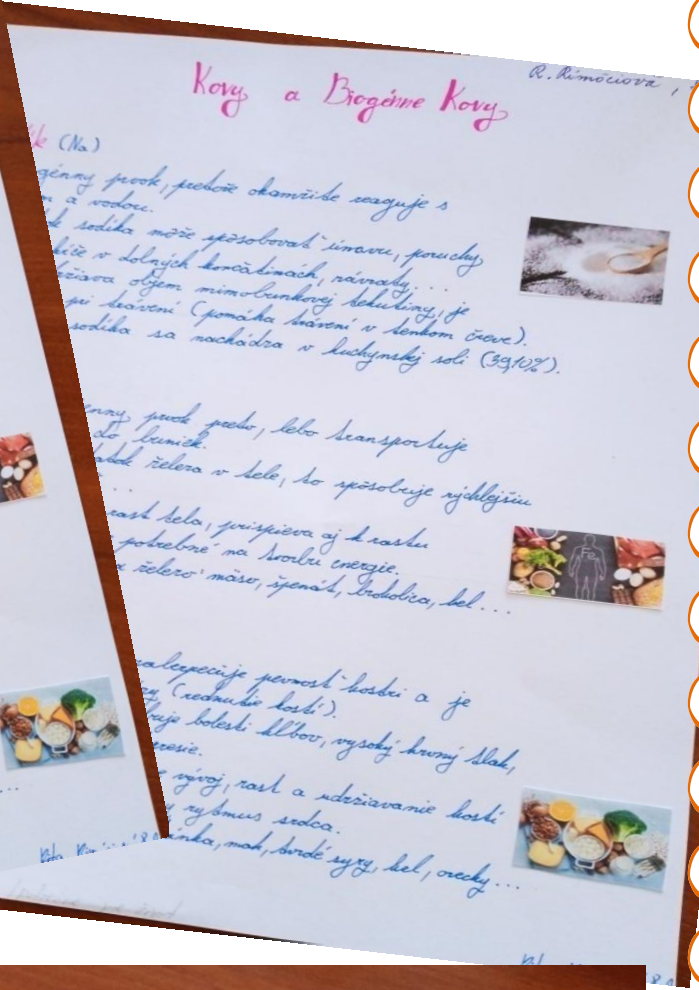 R. Rimóciová,
Kovy a Biogénne Kovy
(Na)
prvok, pretože okamžite reaguje s
a vodou.
sodíka môže spôsobovať únavu, poruchy
v dolných končatinách, návraty...
objem mimobunkovej tekutiny, je
pri trávení (pomáha trávení v tenkom čreve).
sodíka sa nachádza v kuchynskej soli (39,10%).
prvok preto, lebo transportuje
do buniek.
železa v tele, to spôsobuje rýchlejšiu
...
rast tela, prispieva aj k rastu
potrebné na tvorbu energie.
železo: mäso, špenát, brokolica, kel...
Fe
pevnosť kostri a je
(rednutie kostí).
bolesti kĺbov, vysoký krvný tlak,
vývoj, rast a udržiavanie kostí
rytmus srdca.
mak, tvrdé syry, kel, orechy...
...